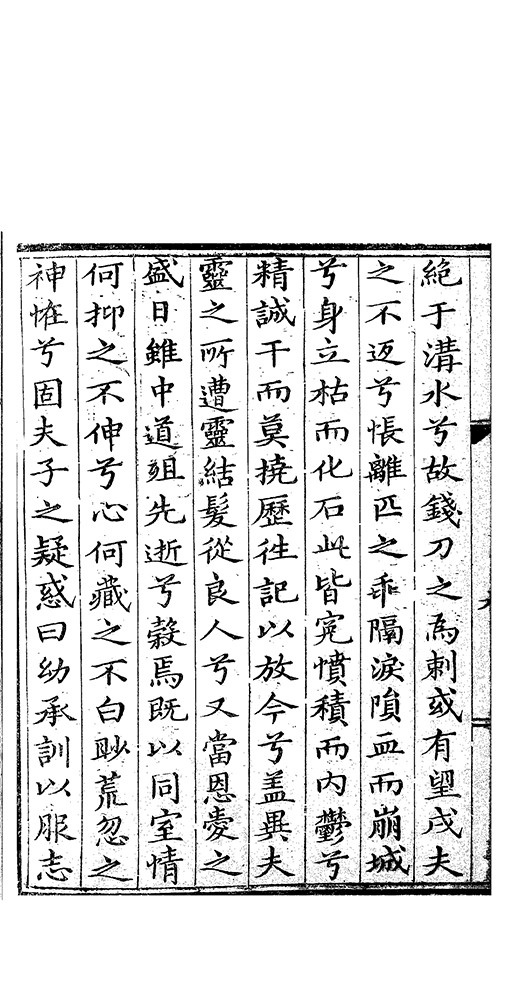 絕于溝水兮故錢刀之爲刺或有望戍夫
之不返兮悵離匹之乖隔淚隕血而崩城
兮身立枯而化石此皆寃憤積而内鬱兮
精誠干而莫撓歷徃記以放今兮盖異夫
靈之所遭靈結髪從良人兮又當恩愛之
盛日雖中道殂先逝兮榖焉既以同室情
何抑之不伸兮心何藏之不白眇荒忽之
神惟兮固夫子之疑惑曰幼承訓以服志